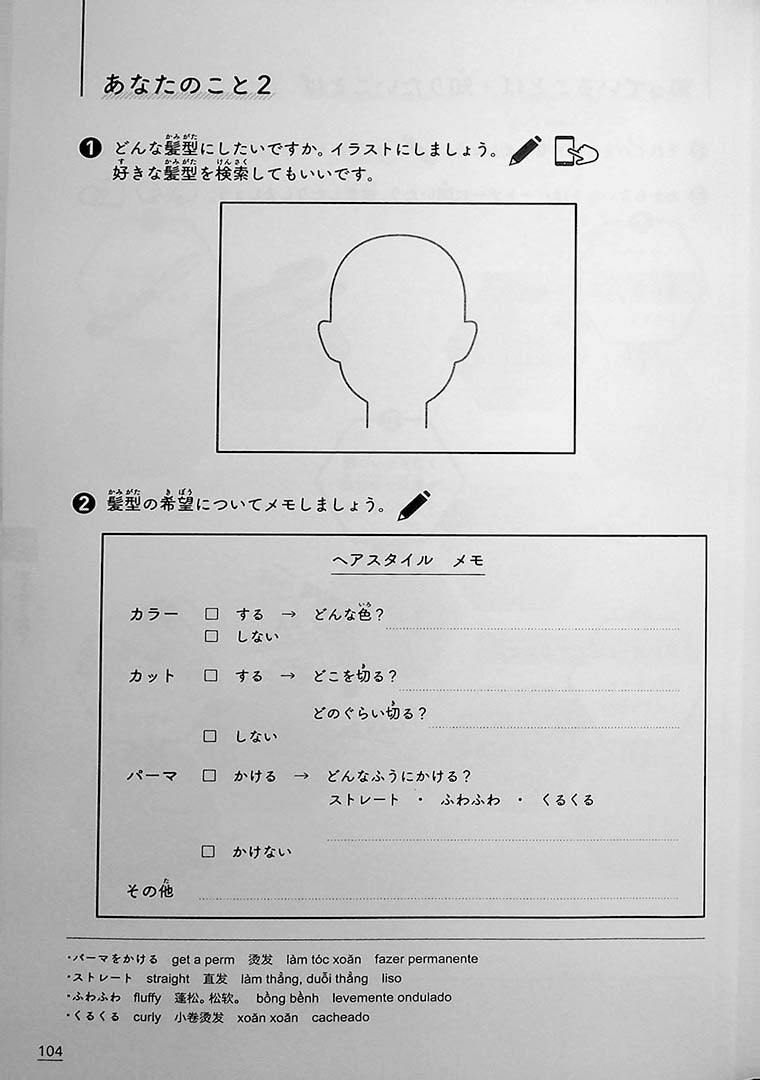 あなたのこと2
❶ どんな髪型にしたいですか。イラストにしましょう。
好きな髪型を検索してもいいです。
❷ 髪型の希望についてメモしましょう。
ヘアスタイル　メモ
カラー □ する → どんな色？
□ しない
カット □ する → どこを切る？
どのぐらい切る？
□ しない
パーマ □ かける → どんなふうにかける？
ストレート ・ ふわふわ ・ くるくる
□ かけない
その他
・パーマをかける get a perm 烫发 làm tóc xoăn fazer permanente
・ストレート straight 直发 làm thẳng, duỗi thẳng liso
・ふわふわ fluffy 蓬松。松软。 bồng bềnh levemente ondulado
・くるくる curly 小卷烫发 xoăn xoăn cacheado
104